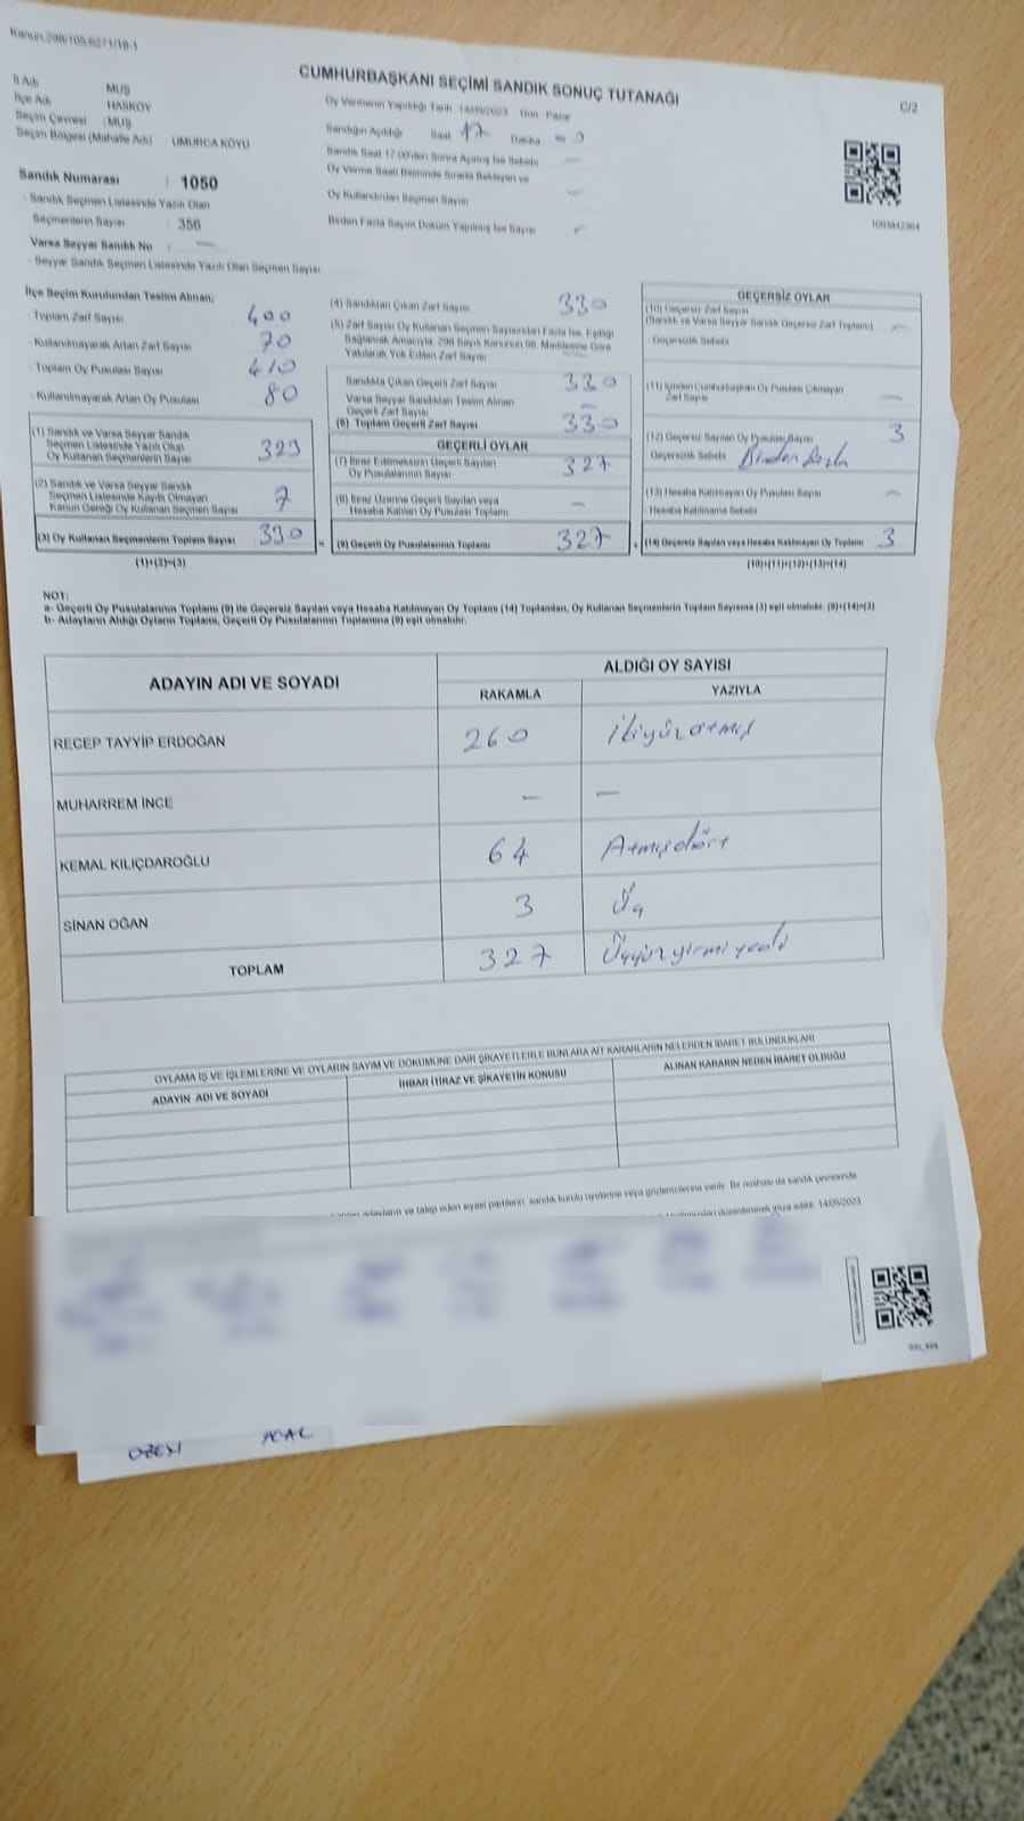 Kanun 298/105,6271/19-1
CUMHURBAŞKANI SEÇİMİ SANDIK SONUÇ TUTANAĞI
C/2
İl Adı : MUŞ
İlçe Adı : HASKÖY
Seçim Çevresi : MUŞ
Seçim Bölgesi (Mahalle Adı) : UMURCA KÖYÜ
Sandık Numarası : 1050
Sandık Seçmen Listesinde Yazılı Olan
Seçmenlerin Sayısı : 356
Varsa Seyyar Sandık No : —
- Seyyar Sandık Seçmen Listesinde Yazılı Olan Seçmen Sayısı
Oy Vermenin Yapıldığı Tarih 14/05/2023 Gün Pazar
Sandığın Açıldığı Saat 17 Dakika
Sandık Saat 17.00'den Sonra Açılmış İse Sebebi —
Oy Verme Saati Bitiminde Sırada Bekleyen ve
Oy Kullandırılan Seçmen Sayısı —
Birden Fazla Sayım Döküm Yapılmış İse Sayısı
İlçe Seçim Kurulundan Teslim Alınan;
- Toplam Zarf Sayısı 400
- Kullanılmayarak Artan Zarf Sayısı 70
- Toplam Oy Pusulası Sayısı 410
- Kullanılmayarak Artan Oy Pusulası 80
(1) Sandık ve Varsa Seyyar Sandık
Seçmen Listesinde Yazılı Olup
Oy Kullanan Seçmenlerin Sayısı 323
(2) Sandık ve Varsa Seyyar Sandık
Seçmen Listesinde Kayıtlı Olmayan
Kanun Gereği Oy Kullanan Seçmen Sayısı 7
(3) Oy Kullanan Seçmenlerin Toplam Sayısı 330
(1)+(2)=(3)
(4) Sandıktan Çıkan Zarf Sayısı 330
(5) Zarf Sayısı Oy Kullanan Seçmen Sayısından Fazla İse, Eşitliği
Sağlamak Amacıyla, 298 Sayılı Kanunun 98. Maddesine Göre
Yakılarak Yok Edilen Zarf Sayısı
Sandıkta Çıkan Geçerli Zarf Sayısı 330
Varsa Seyyar Sandıktan Teslim Alınan
Geçerli Zarf Sayısı —
(6) Toplam Geçerli Zarf Sayısı 330
GEÇERLİ OYLAR
(7) İtiraz Edilmeksizin Geçerli Sayılan
Oy Pusulalarının Sayısı 327
(8) İtiraz Üzerine Geçerli Sayılan veya
Hesaba Katılan Oy Pusulası Toplamı —
(9) Geçerli Oy Pusulalarının Toplamı 327
GEÇERSİZ OYLAR
(10) Geçersiz Zarf Sayısı
(Sandık ve Varsa Seyyar Sandık Geçersiz Zarf Toplamı) —
Geçersizlik Sebebi
(11) İçinden Cumhurbaşkanı Oy Pusulası Çıkmayan
Zarf Sayısı —
(12) Geçersiz Sayılan Oy Pusulası Sayısı 3
Geçersizlik Sebebi Birden fazla
(13) Hesaba Katılmayan Oy Pusulası Sayısı —
Hesaba Katılmama Sebebi
(14) Geçersiz Sayılan veya Hesaba Katılmayan Oy Toplamı 3
(10)+(11)+(12)+(13)=(14)
NOT:
a- Geçerli Oy Pusulalarının Toplamı (9) ile Geçersiz Sayılan veya Hesaba Katılmayan Oy Toplamı (14) Toplamları, Oy Kullanan Seçmenlerin Toplam Sayısına (3) eşit olmalıdır. (9)+(14)=(3)
b- Adayların Aldığı Oyların Toplamı, Geçerli Oy Pusulalarının Toplamına (9) eşit olmalıdır.
ADAYIN ADI VE SOYADI
ALDIĞI OY SAYISI
RAKAMLA YAZIYLA
RECEP TAYYİP ERDOĞAN 260 ikiyüzatmış
MUHARREM İNCE — —
KEMAL KILIÇDAROĞLU 64 Atmışdört
SİNAN OĞAN 3 Üç
TOPLAM 327 Üçyüzyirmiyedi
OYLAMA İŞ VE İŞLEMLERİNE VE OYLARIN SAYIM VE DÖKÜMÜNE DAİR ŞİKAYETLERLE BUNLARA AİT KARARLARIN NELERDEN İBARET BULUNDUKLARI
ADAYIN ADI VE SOYADI
İHBAR İTİRAZ VE ŞİKAYETİN KONUSU
ALINAN KARARIN NEDEN İBARET OLDUĞU
adayların ve talep eden siyasi partilerin, sandık kurulu üyelerine veya gözlemcilerine verilir. Bir nüshası da sandık çevresinde
düzenlenerek imza edildi. 14/05/2023